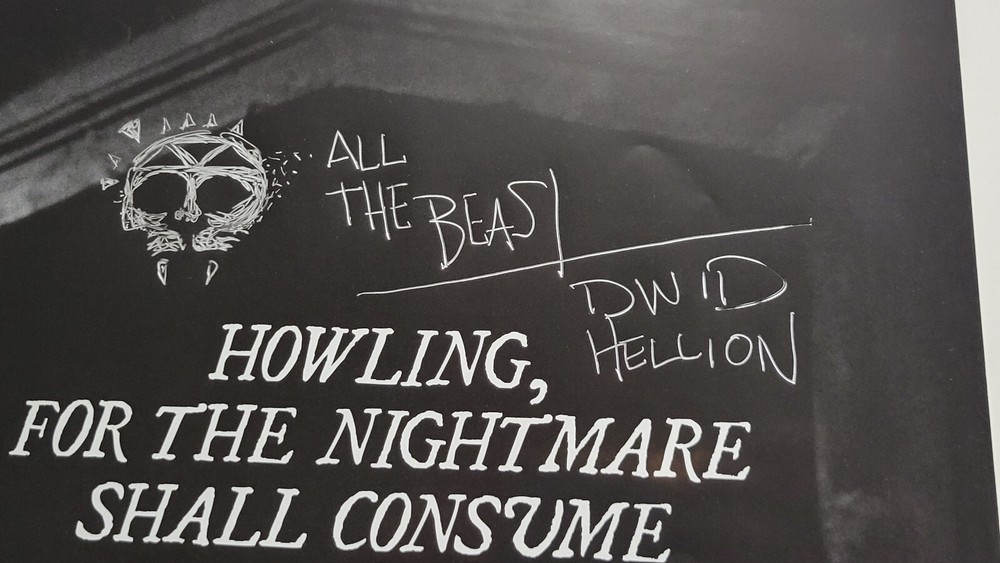 ALL
THE BEAST
DWID
HELLION
HOWLING,
FOR THE NIGHTMARE
SHALL CONSUME